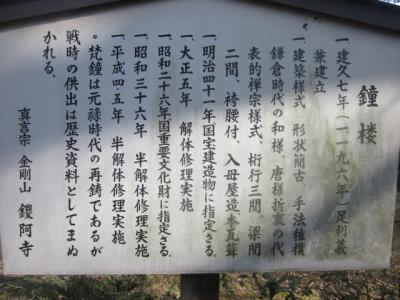 鐘楼
一、建久七年(一一九六年)足利義
兼建立
一、建築様式 形状簡古、手法雅撲
鎌倉時代の和様、唐様折衷の代
表的禅宗様式、桁行三間、梁間
二間、袴腰付、入母屋造本瓦葺
一、明治四十一年国宝建造物に指定さる。
一、大正五年 解体修理実施
一、昭和二十六年国重要文化財に指定さる。
一、昭和三十六年 半解体修理実施
一、平成四・五年 半解体修理実施
。梵鐘は元禄時代の再鋳であるが
戦時の供出は歴史資料としてまぬ
かれる。
真言宗 金剛山 鑁阿寺